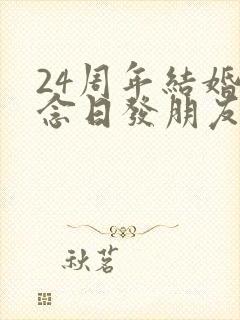 24周年結婚
念日發朋友
秋茗